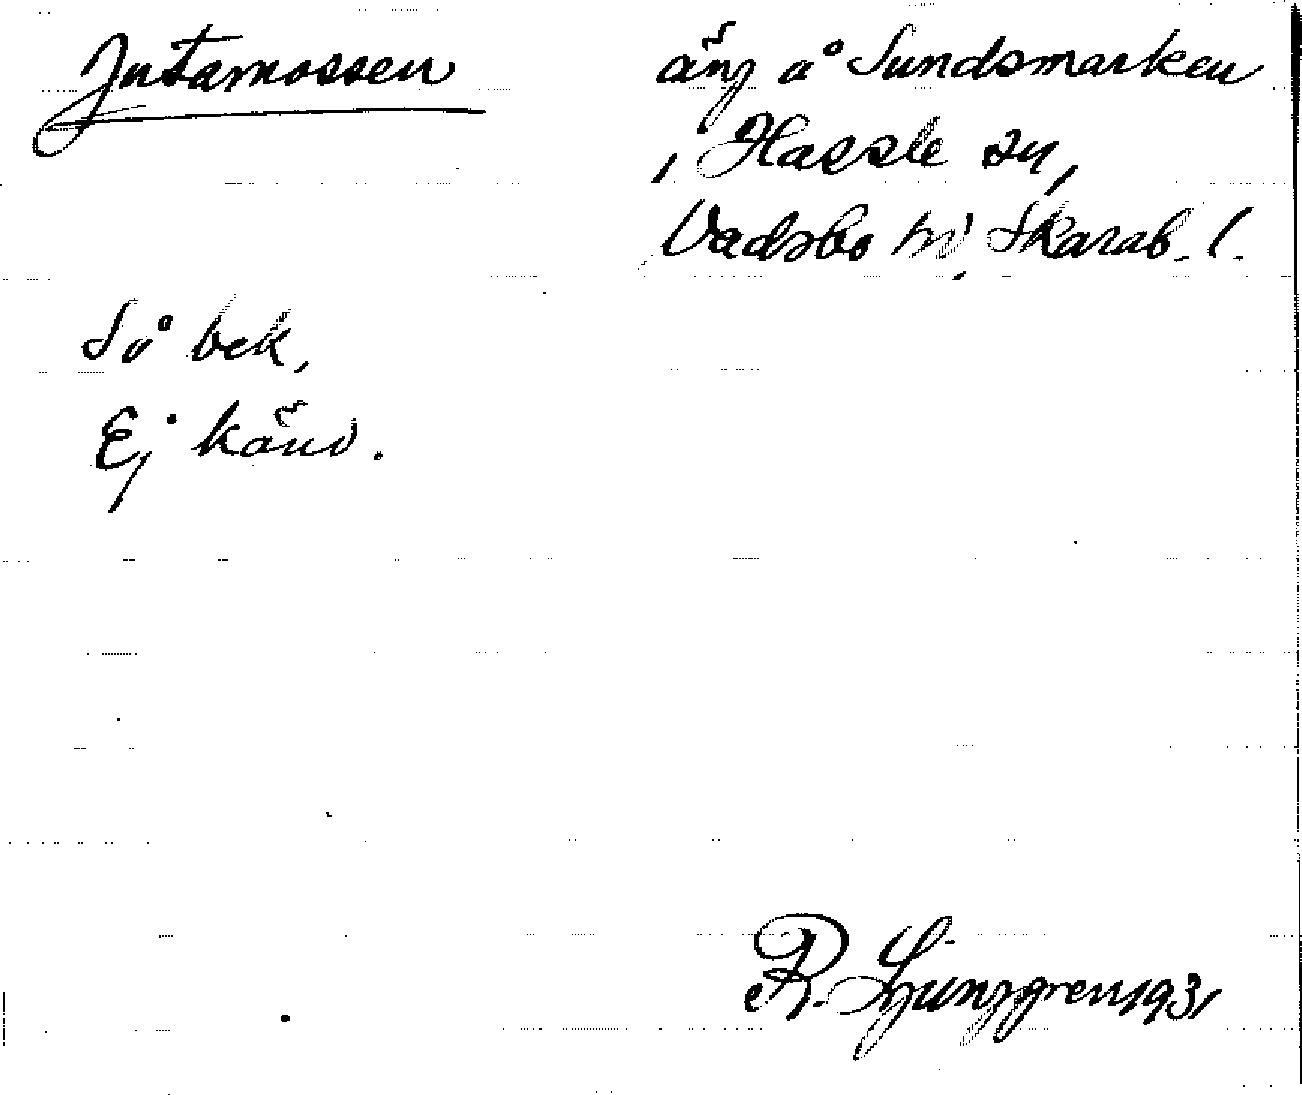 Jutamossen
äng å Sundsmarken
, Hassle sn,
Vadsbo hd, Skarab. l.
Så bek,
Ej känd.
R. Ljunggren 1931